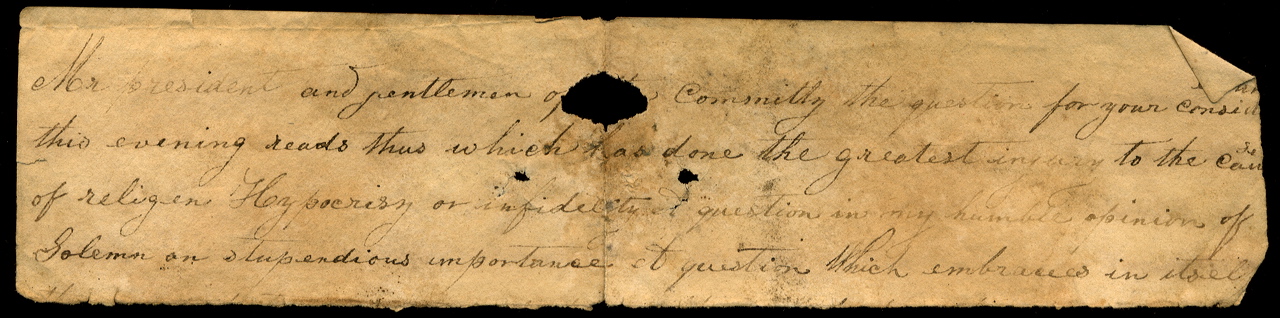 Mr President and gentlemen of Committy the question for your consid
this evening reads thus which has done the greatest injury to the cau
of religen Hypocrisy or infidelity A question in my humble opinion of
Solemn an stupendious importance A question Which embraces in itsel